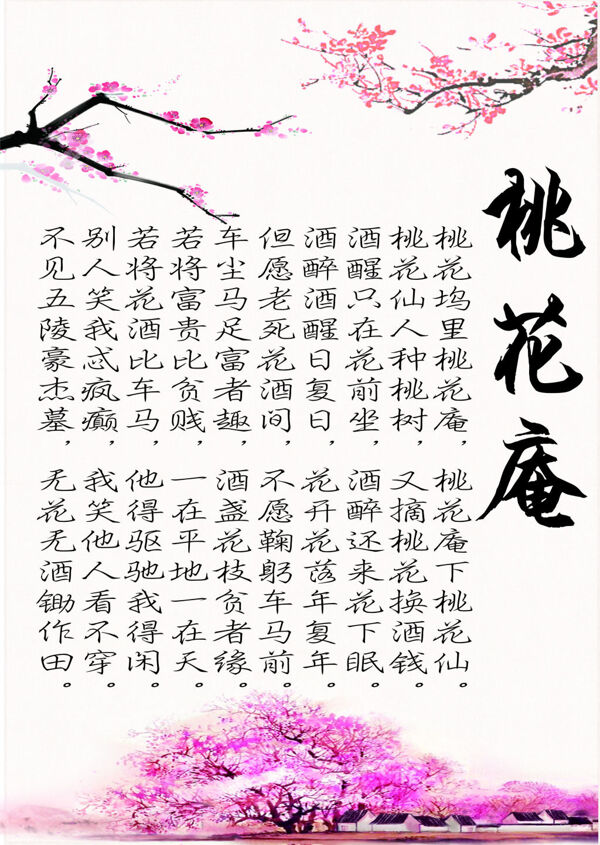 桃花庵
桃花坞里桃花庵，桃花庵下桃花仙。
桃花仙人种桃树，又摘桃花换酒钱。
酒醒只在花前坐，酒醉还来花下眠。
酒醉酒醒日复日，花开花落年复年。
但愿老死花酒间，不愿鞠躬车马前。
车尘马足富者趣，酒盏花枝贫者缘。
若将富贵比贫贱，一在平地一在天。
若将花酒比车马，他得驱驰我得闲。
别人笑我忒疯癫，我笑他人看不穿。
不见五陵豪杰墓，无花无酒锄作田。